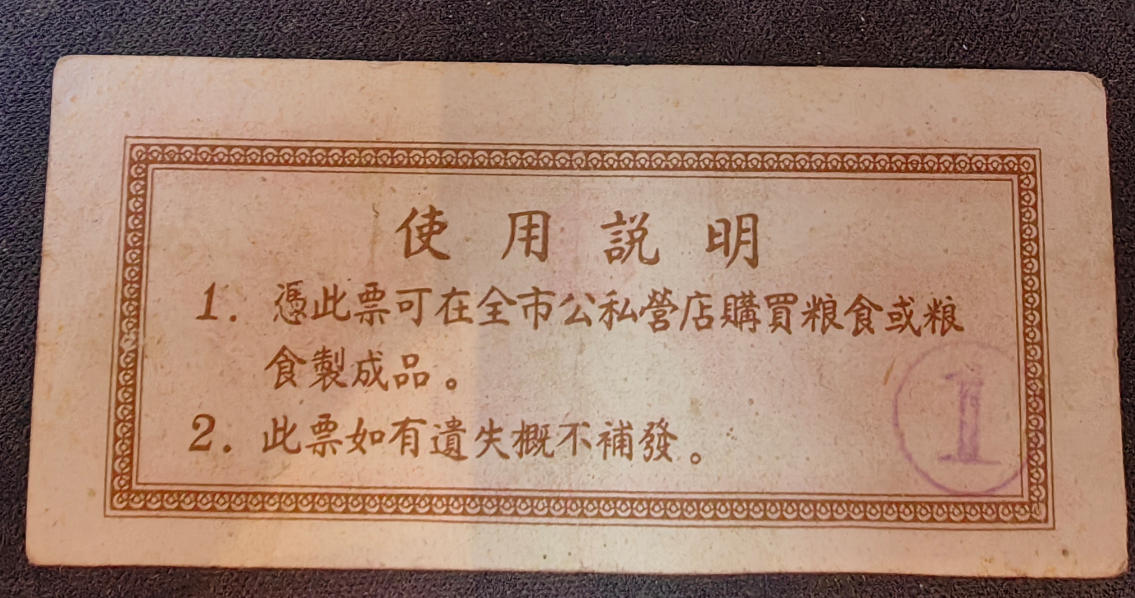 使用説明
1. 憑此票可在全市公私營店購買粮食或粮
食製成品。
2. 此票如有遺失概不補發。
1